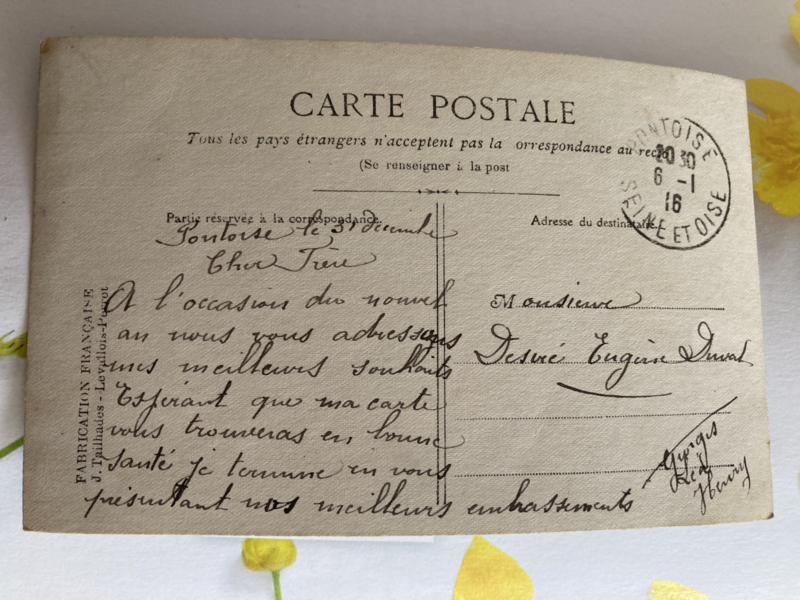 CARTE POSTALE
Tous les pays étrangers n'acceptent pas la orrespondance au recto
(Se renseigner à la post
PONTOISE
20 30
6 - 1
16
SEINE ET OISE
Partie réservée à la correspondance.
Adresse du destinataire.
Pontoise le 31 décembre
Cher Frère
A l'occasion du nouvel
an nous vous adressons
mes meilleurs souhaits
Espérant que ma carte
vous trouveras en bonne
santé je termine en vous
présentant nos meilleurs embrassements
Monsieur
Desiré Eugène Duval
Henry
FABRICATION FRANÇAISE
J. Tailhades - Levallois-Perret